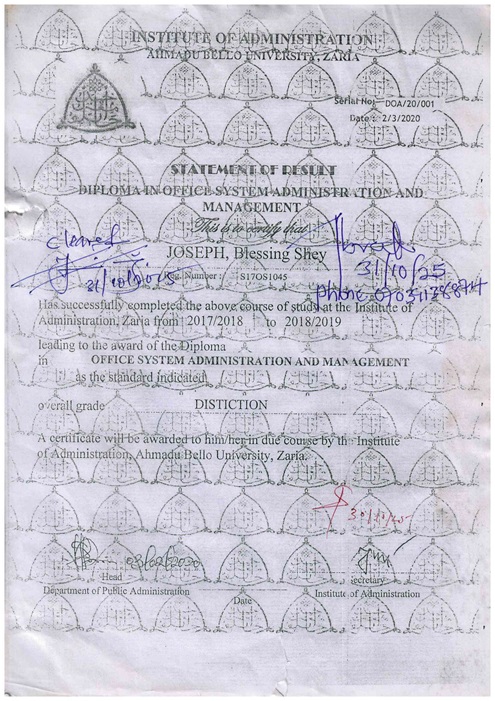 INSTITUTE OF ADMINISTRATION
AHMADU BELLO UNIVERSITY, ZARIA
Serial No: DOA/20/001
Date : 2/3/2020
STATEMENT OF RESULT
DIPLOMA IN OFFICE SYSTEM ADMINISTRATION AND
MANAGEMENT
This is to certify that
Cleared
31/10/2025
31/10/25
phone
JOSEPH, Blessing Shey
Reg. Number : S17OS1045
Has successfully completed the above course of study at the Institute of
Administration, Zaria from 2017/2018 to 2018/2019
leading to the award of the Diploma
in OFFICE SYSTEM ADMINISTRATION AND MANAGEMENT
as the standard indicated
overall grade DISTICTION
A certificate will be awarded to him/her in due course by the Institute
of Administration, Ahmadu Bello University, Zaria.
03/02/2020
Head
Department of Public Administration
Date
Secretary
Institute of Administration